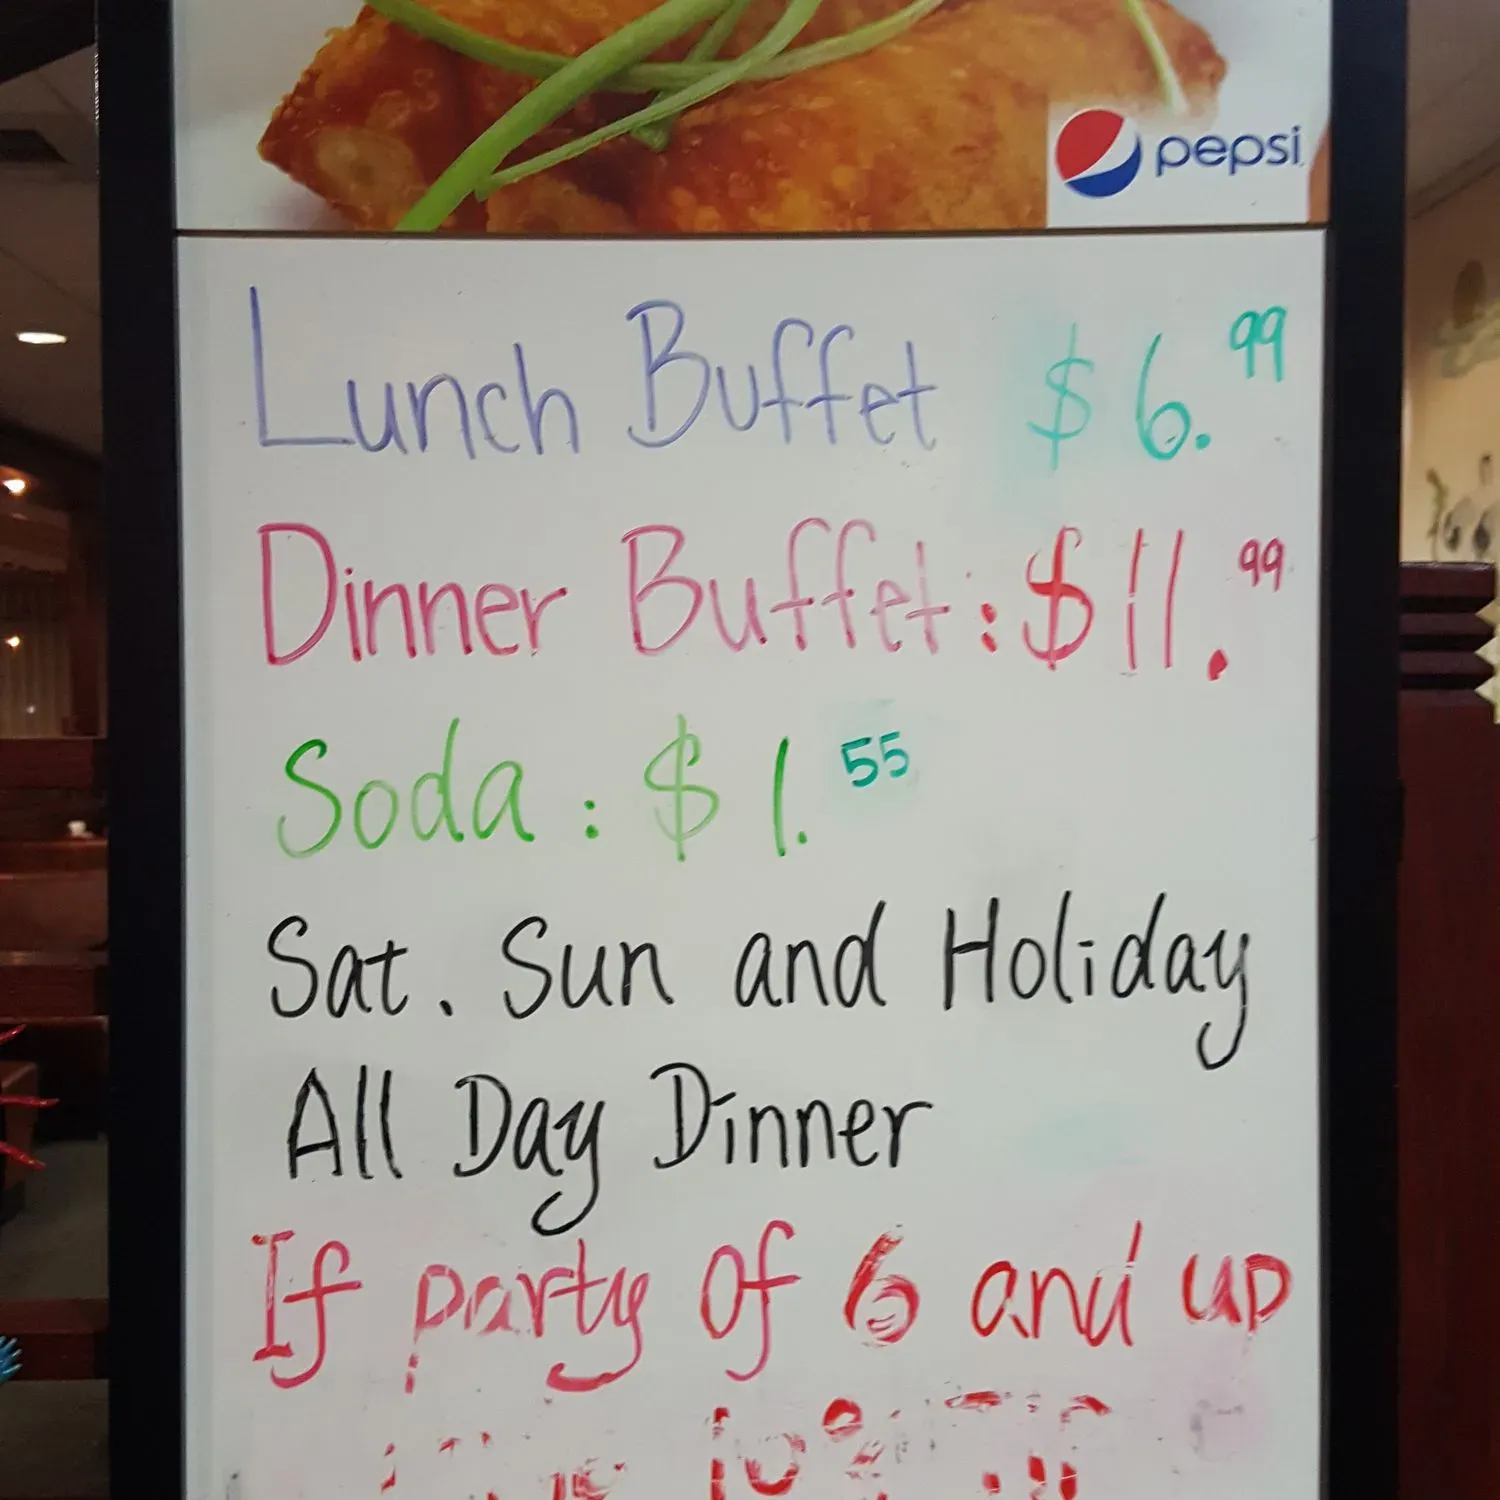 pepsi
Lunch Buffet $6.99
Dinner Buffet: $11.99
Soda: $1.55
Sat. Sun and Holiday
All Day Dinner
If party of 6 and up
10%